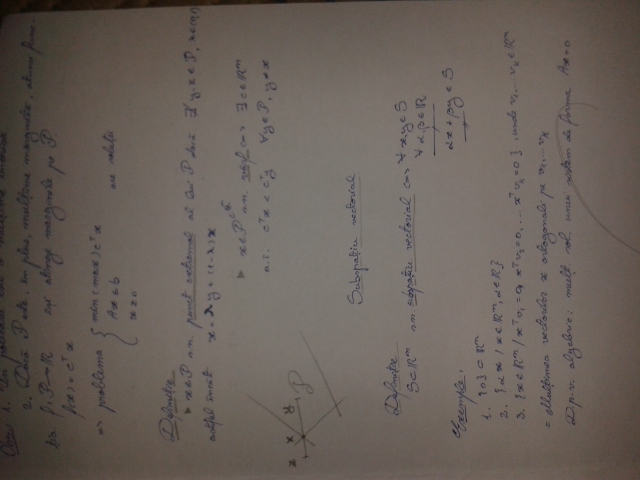 Obs: 1. Un poliedru este o mulțime convexă
2. Dacă P este, în plus, mulțime mărginită, atunci func.
lin. f: P → R își atinge marginile pe P.
f(x) = cᵀx
=> problema { min (max) cᵀx
Ax ≤ b are soluție
x ≥ 0
Definiție
• x ∈ P s.n. punct extremal al lui P dacă ∄ y, z ∈ P,
astfel încât x = λy + (1-λ)z
• x ∈ P s.n. vârf <=> ∃ c ∈ Rⁿ
a.î. cᵀx < cᵀy ∀ y ∈ P, y ≠ x
z x y P
Subspațiu vectorial
Definiție
S ⊂ Rⁿ s.n. subspațiu vectorial <=> ∀ x, y ∈ S
∀ α, β ∈ R
αx + βy ∈ S
Exemple:
1. {0} ⊂ Rⁿ
2. {αx / x ∈ Rⁿ, α ∈ R}
3. {x ∈ Rⁿ / xᵀv₁ = 0, xᵀv₂ = 0, ... xᵀvₖ = 0}, unde v₁ ... vₖ ∈ Rⁿ
= mulțimea vectorilor x ortogonali pe v₁ ... vₖ
D.p.v. algebric: mulț. sol. unui sistem de forma Ax = 0